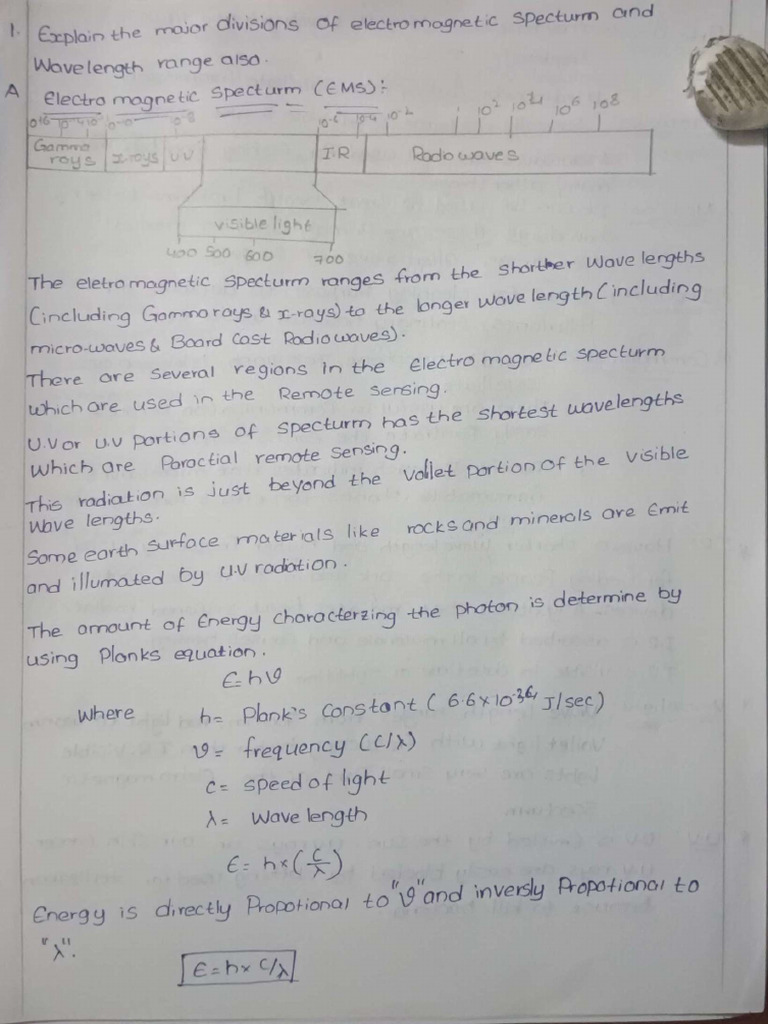 1. Explain the major divisions of electromagnetic specturm and
Wavelength range also.
A Electro magnetic specturm (EMS):-
10² 10⁶ 10⁸
Gamma rays x-rays UV IR Radio waves
visible light
400 500 600 700
The eletro magnetic specturm ranges from the shorther wave lengths
(including Gamma rays & x-rays) to the longer wave length (including
micro-waves & Board Cast Radio waves).
There are several regions in the Electro magnetic specturm
which are used in the Remote sensing.
U.V or u.v portions of specturm has the shortest wavelengths
which are Paractial remote sensing.
This radiation is just beyond the vallet portion of the visible
wave lengths.
Some earth surface materials like rocks and minerals are Emit
and illumated by U.V radation.
The amount of Energy characterzing the photon is determine by
using Planks equation.
E=hϑ
Where h= Plank's Constant (6.6×10⁻³⁴ J/sec)
ϑ= frequency (C/λ)
C= speed of light
λ= Wave length
E= h×(C/λ)
Energy is directly Propotional to "ϑ" and inversly Propotional to
"λ".
E=h× C/λ